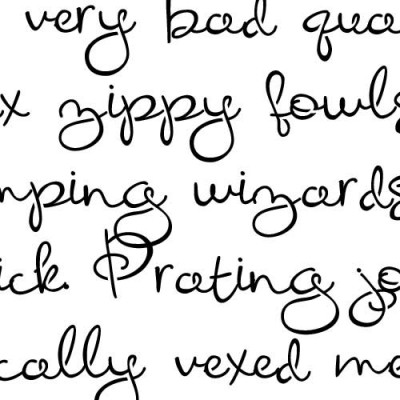 very bad qua
x zippy fowls
mping wizards
ick. Prating jo
cally vexed me